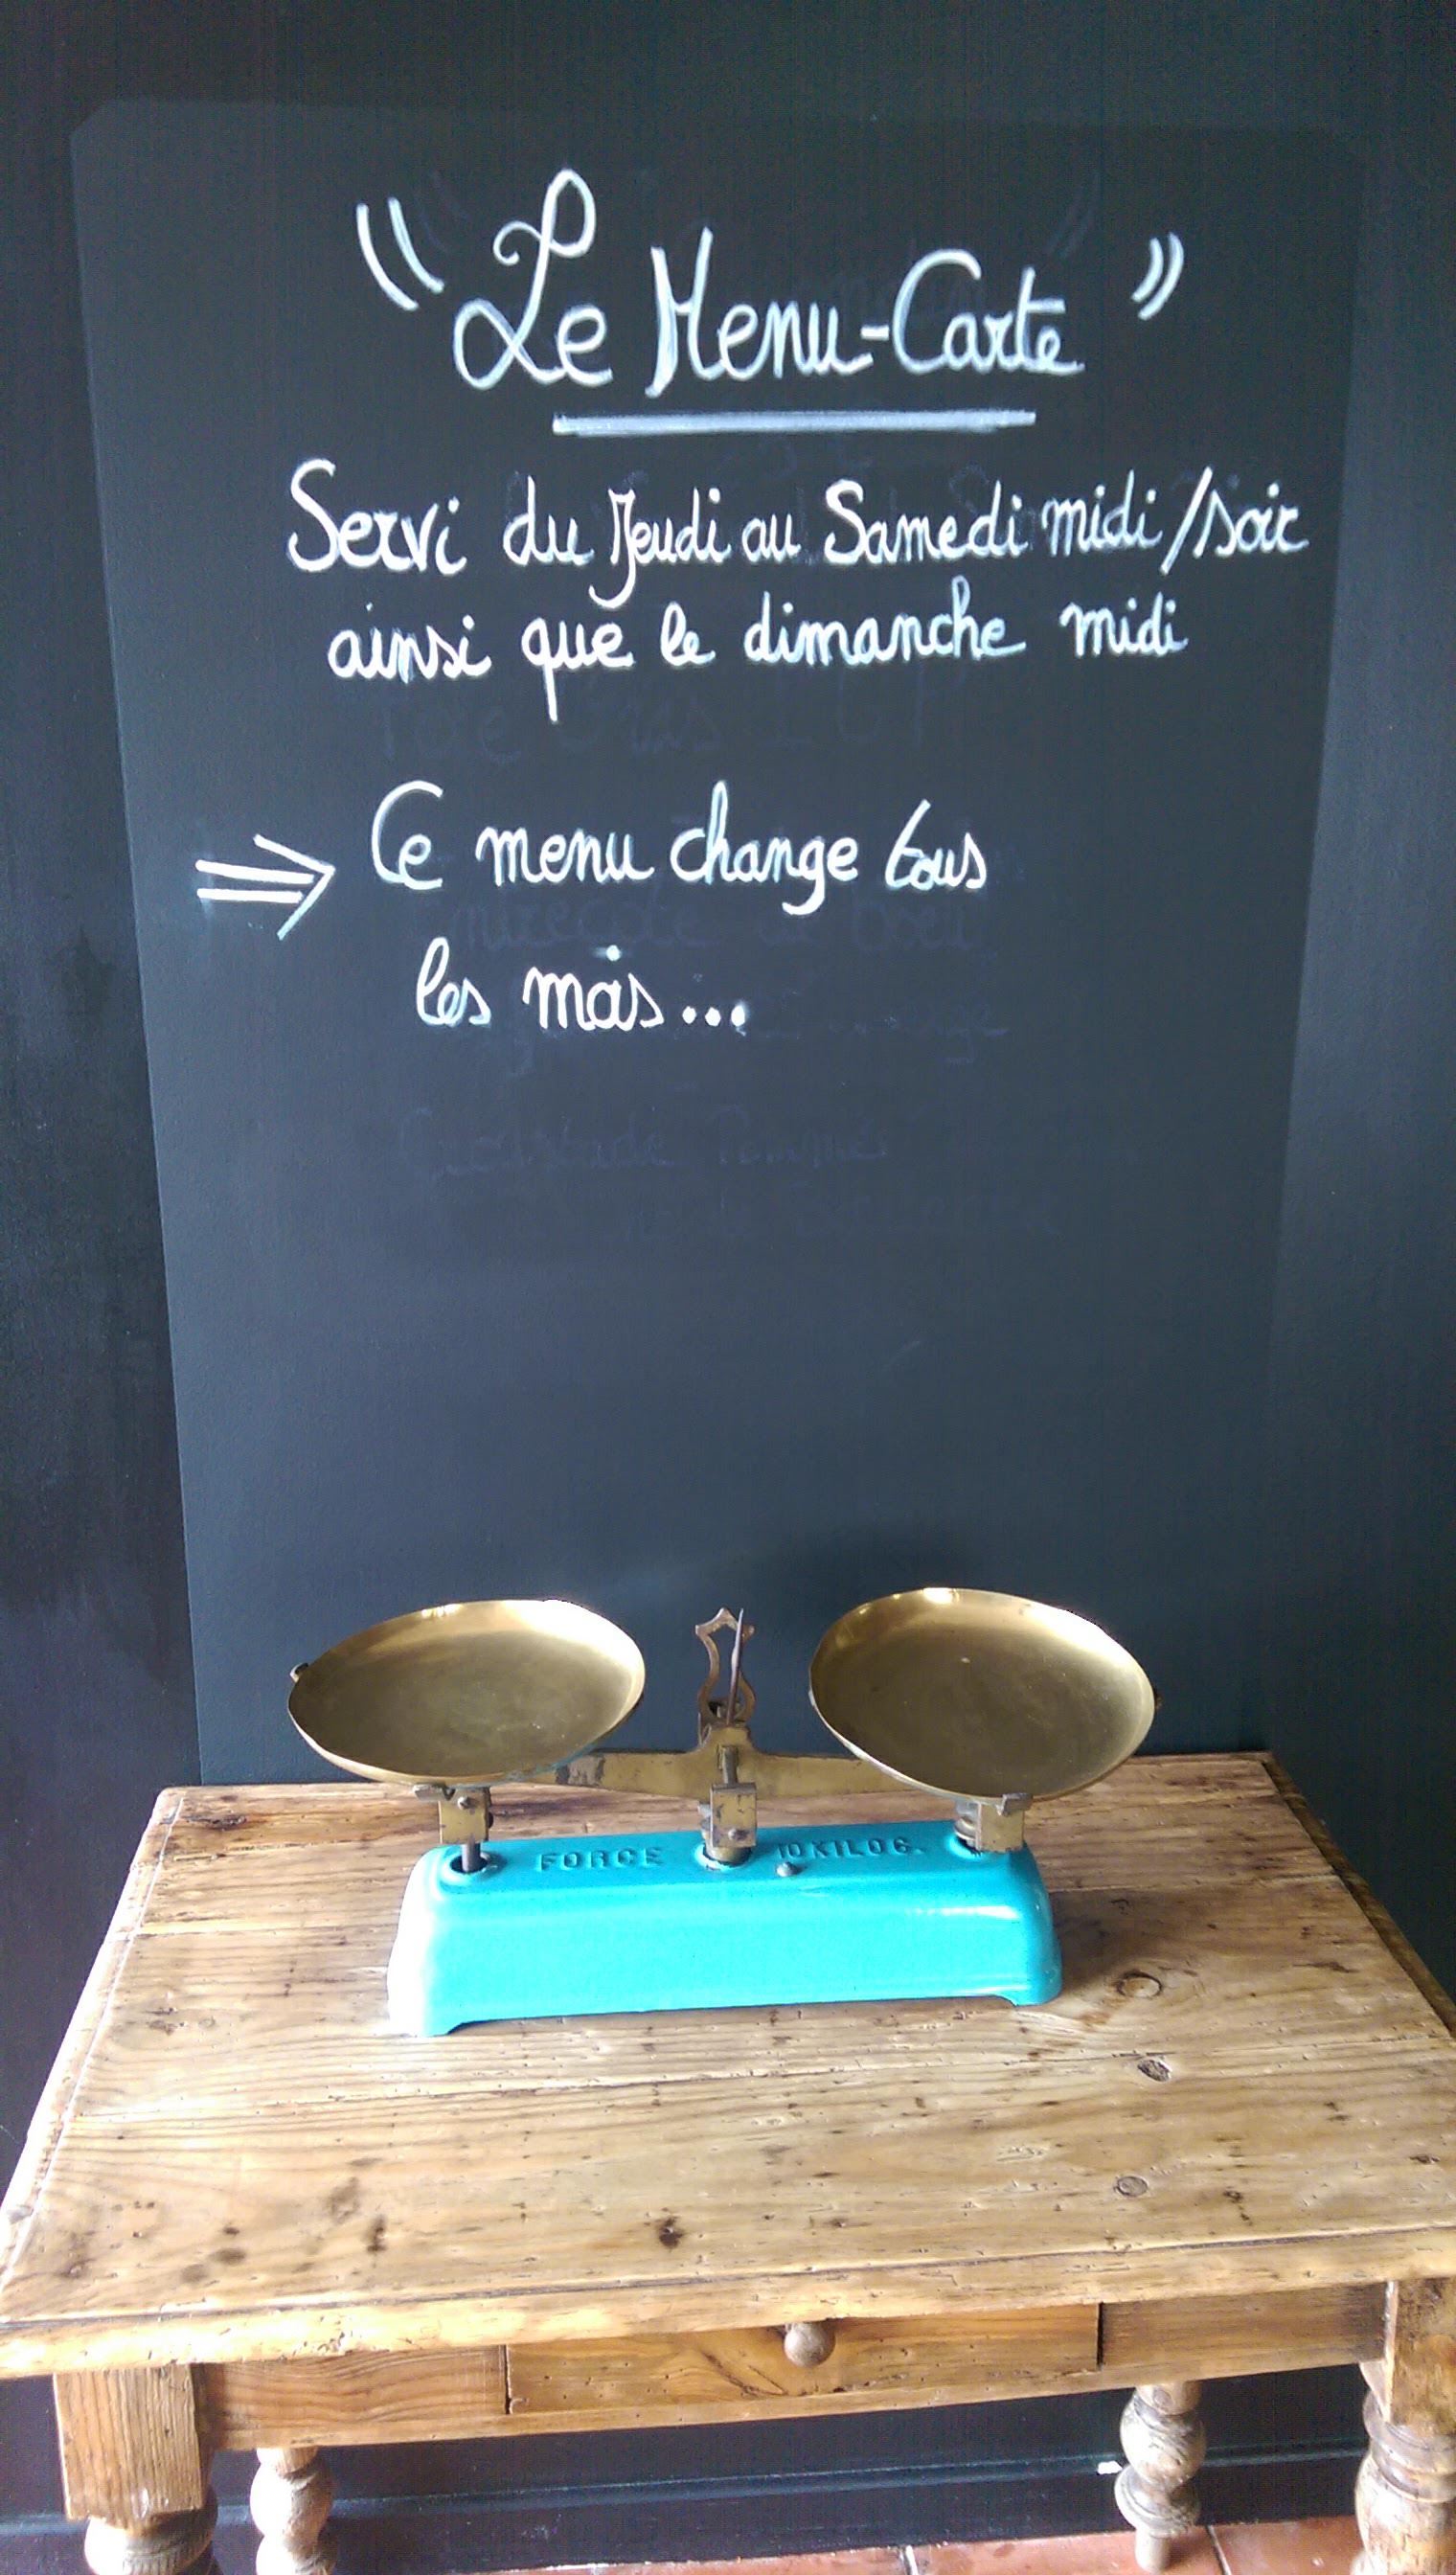 "Le Menu-Carte"
Servi du Jeudi au Samedi midi/soir
ainsi que le dimanche midi
⇒ Ce menu change tous
les mois...
FORCE 10 KILOG.